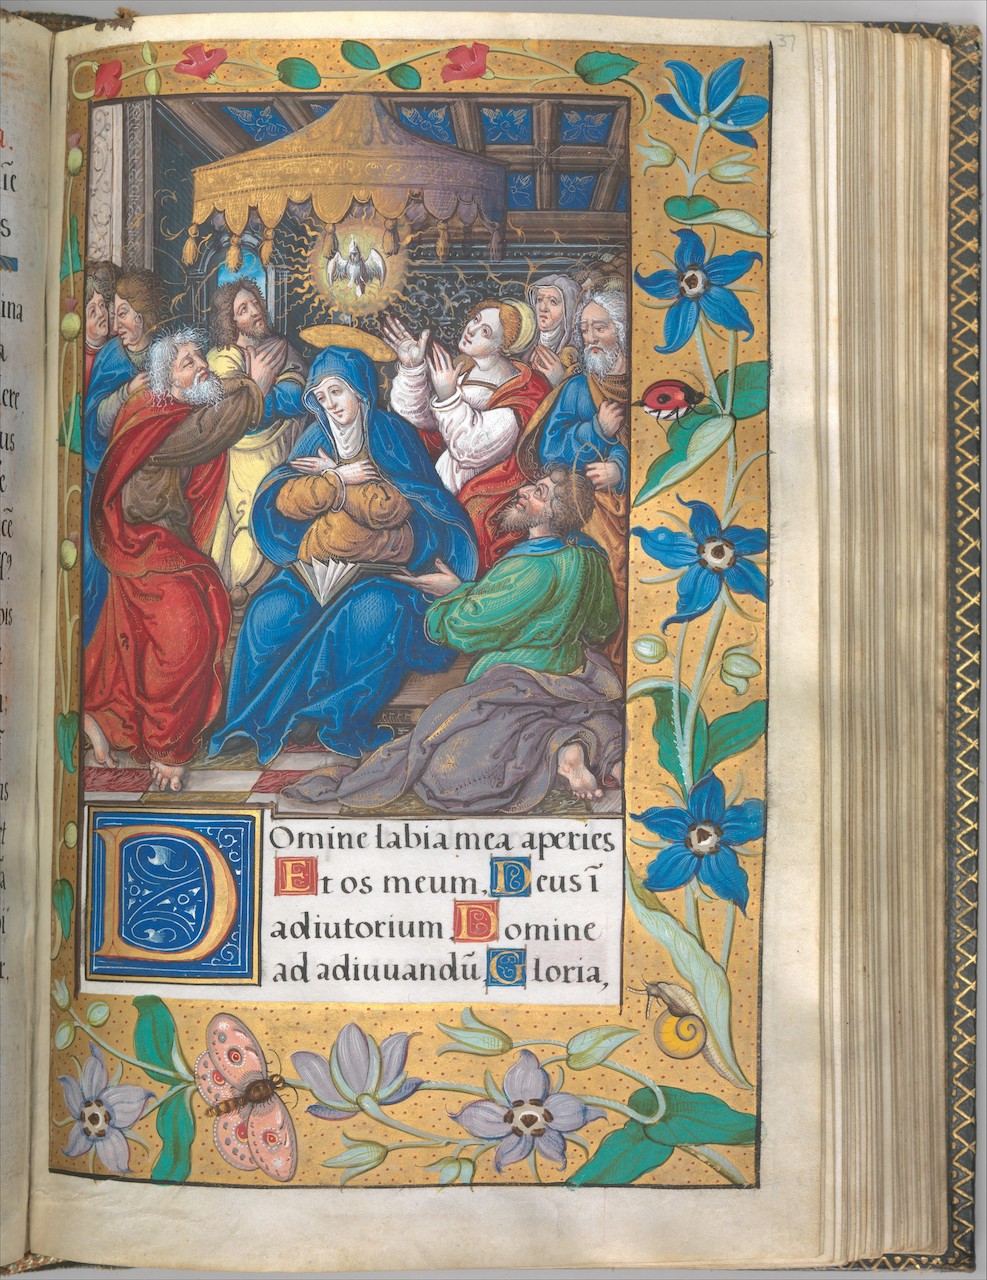 37
Domine labia mea aperies
Et os meum, Deus ī
adiutorium Domine
ad adiuuandū, Gloria,